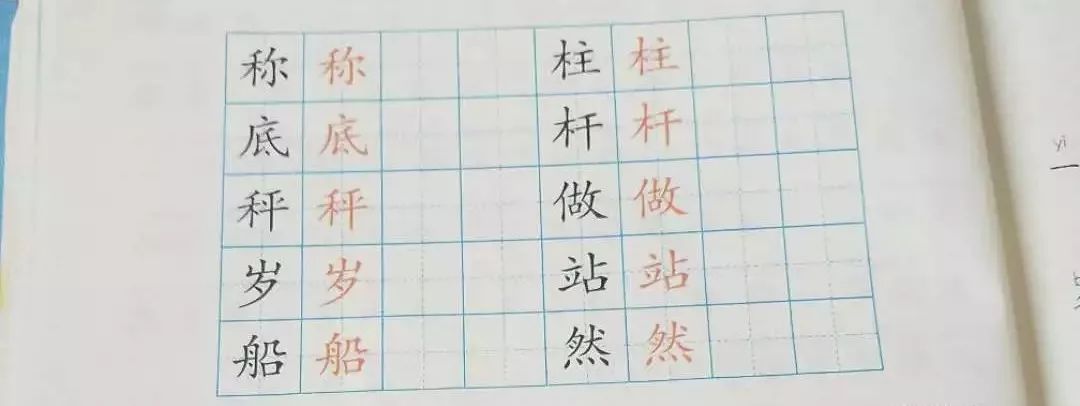 称 称 柱 柱
底 底 杆 杆
秤 秤 做 做
岁 岁 站 站
船 船 然 然